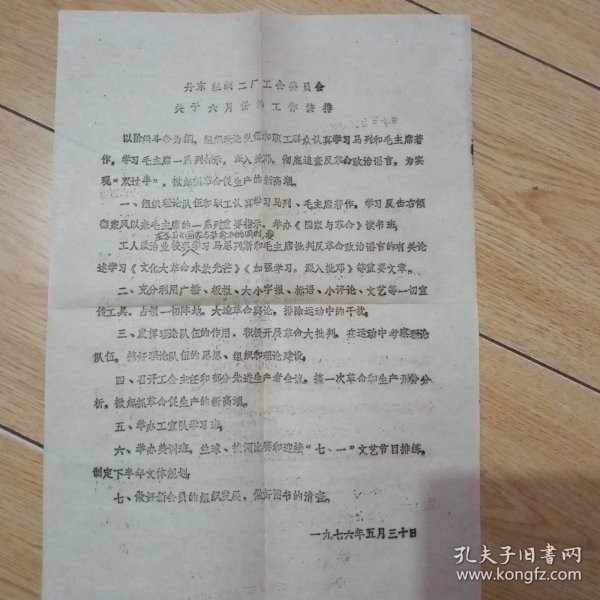 丹东丝绸二厂工会委员会
关于六月份的工作安排
以阶级斗争为纲，组织理论队伍和职工群众认真学习马列和毛主席著
作，学习毛主席一系列指示，深入批邓，彻底追查反革命政治谣言，为实
现“双过半”，掀起抓革命促生产的新高潮。
一、组织理论队伍和职工认真学习马列、毛主席著作，学习反击右倾
翻案风以来毛主席的一系列重要指示，举办《国家与革命》读书班。
工人政治业校要学习马恩列斯和毛主席批判反革命政治谣言的有关论
述学习《文化大革命永放光芒》《加强学习，深入批邓》等重要文章。
二、充分利用广播、板报、大小字报、标语、小评论、文艺等一切宣
传工具，占领一切阵地，大造革命舆论，排除运动中的干扰。
三、发挥理论队伍的作用，积极开展革命大批判，在运动中考察理论
队伍，搞好理论队伍的思想、组织和理论建设。
四、召开工会主任和部分先进生产者会议，搞一次革命和生产形势分
析，掀起抓革命促生产的新高潮。
五、举办工宣队学习班。
六、举办美训班，篮球、横河比赛和迎接“七、一”文艺节目排练，
制定下半年文体规划。
七、做好新会员的组织发展，做好图书的清查。
一九七六年五月三十日
孔夫子旧书网
www.kongfz.com